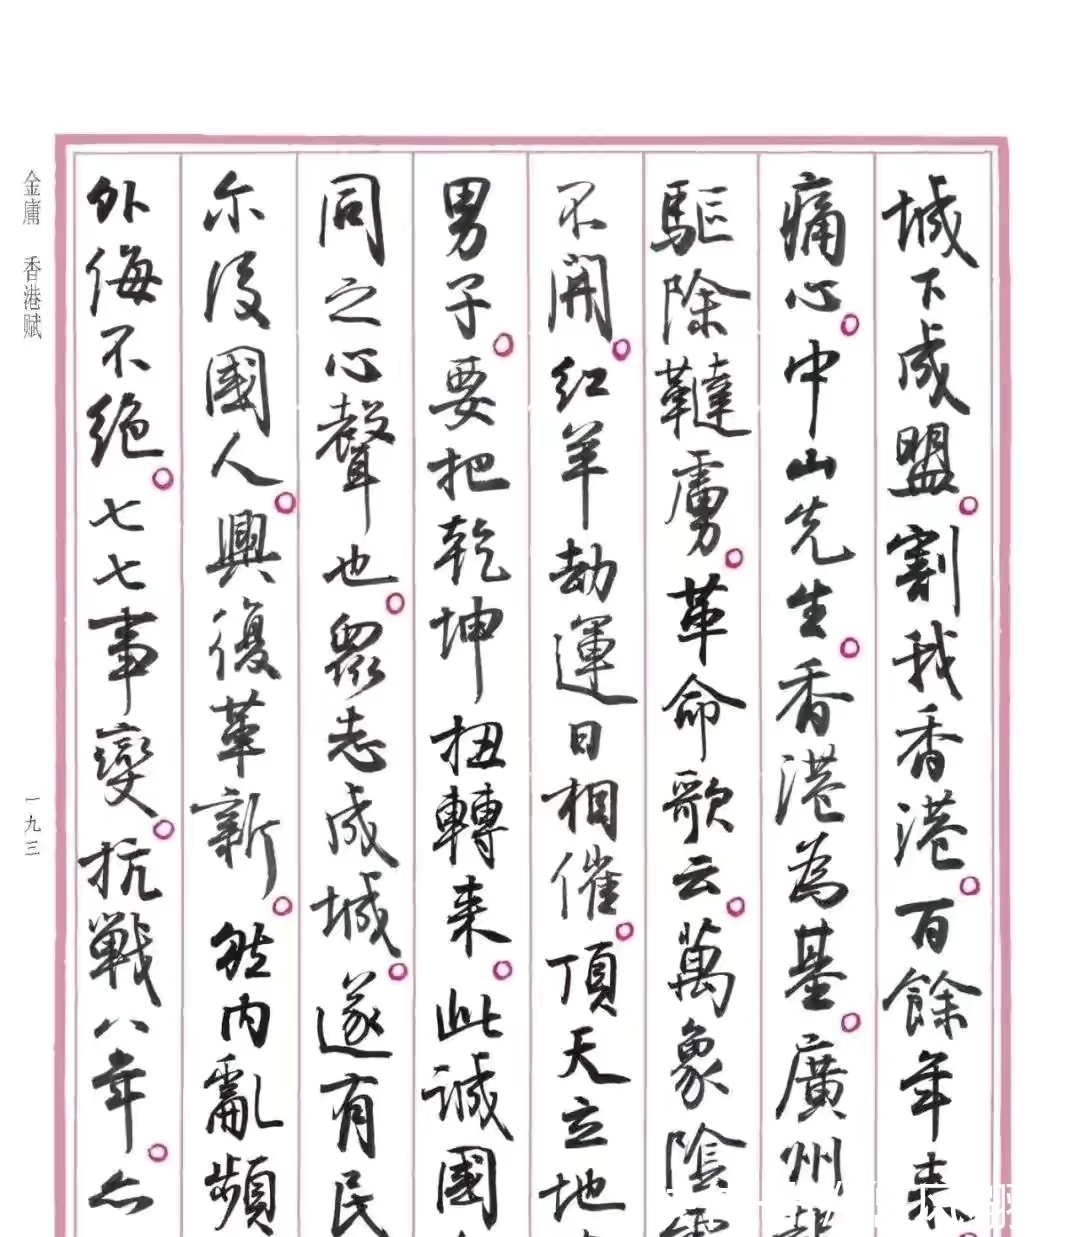 城下成盟。割我香港。百餘年来
痛心。中山先生。香港為基。廣州
驅除韃虜。革命歌云。萬象陰
不開。红羊劫運日相催。頂天立地
男子。要把乾坤扭轉来。此誠國
同之心聲也。眾志成城。遂有民
尔後國人。興復革新。然内亂頻
外侮不绝。七七事變。抗戰八年。
金庸 香港赋
一九三